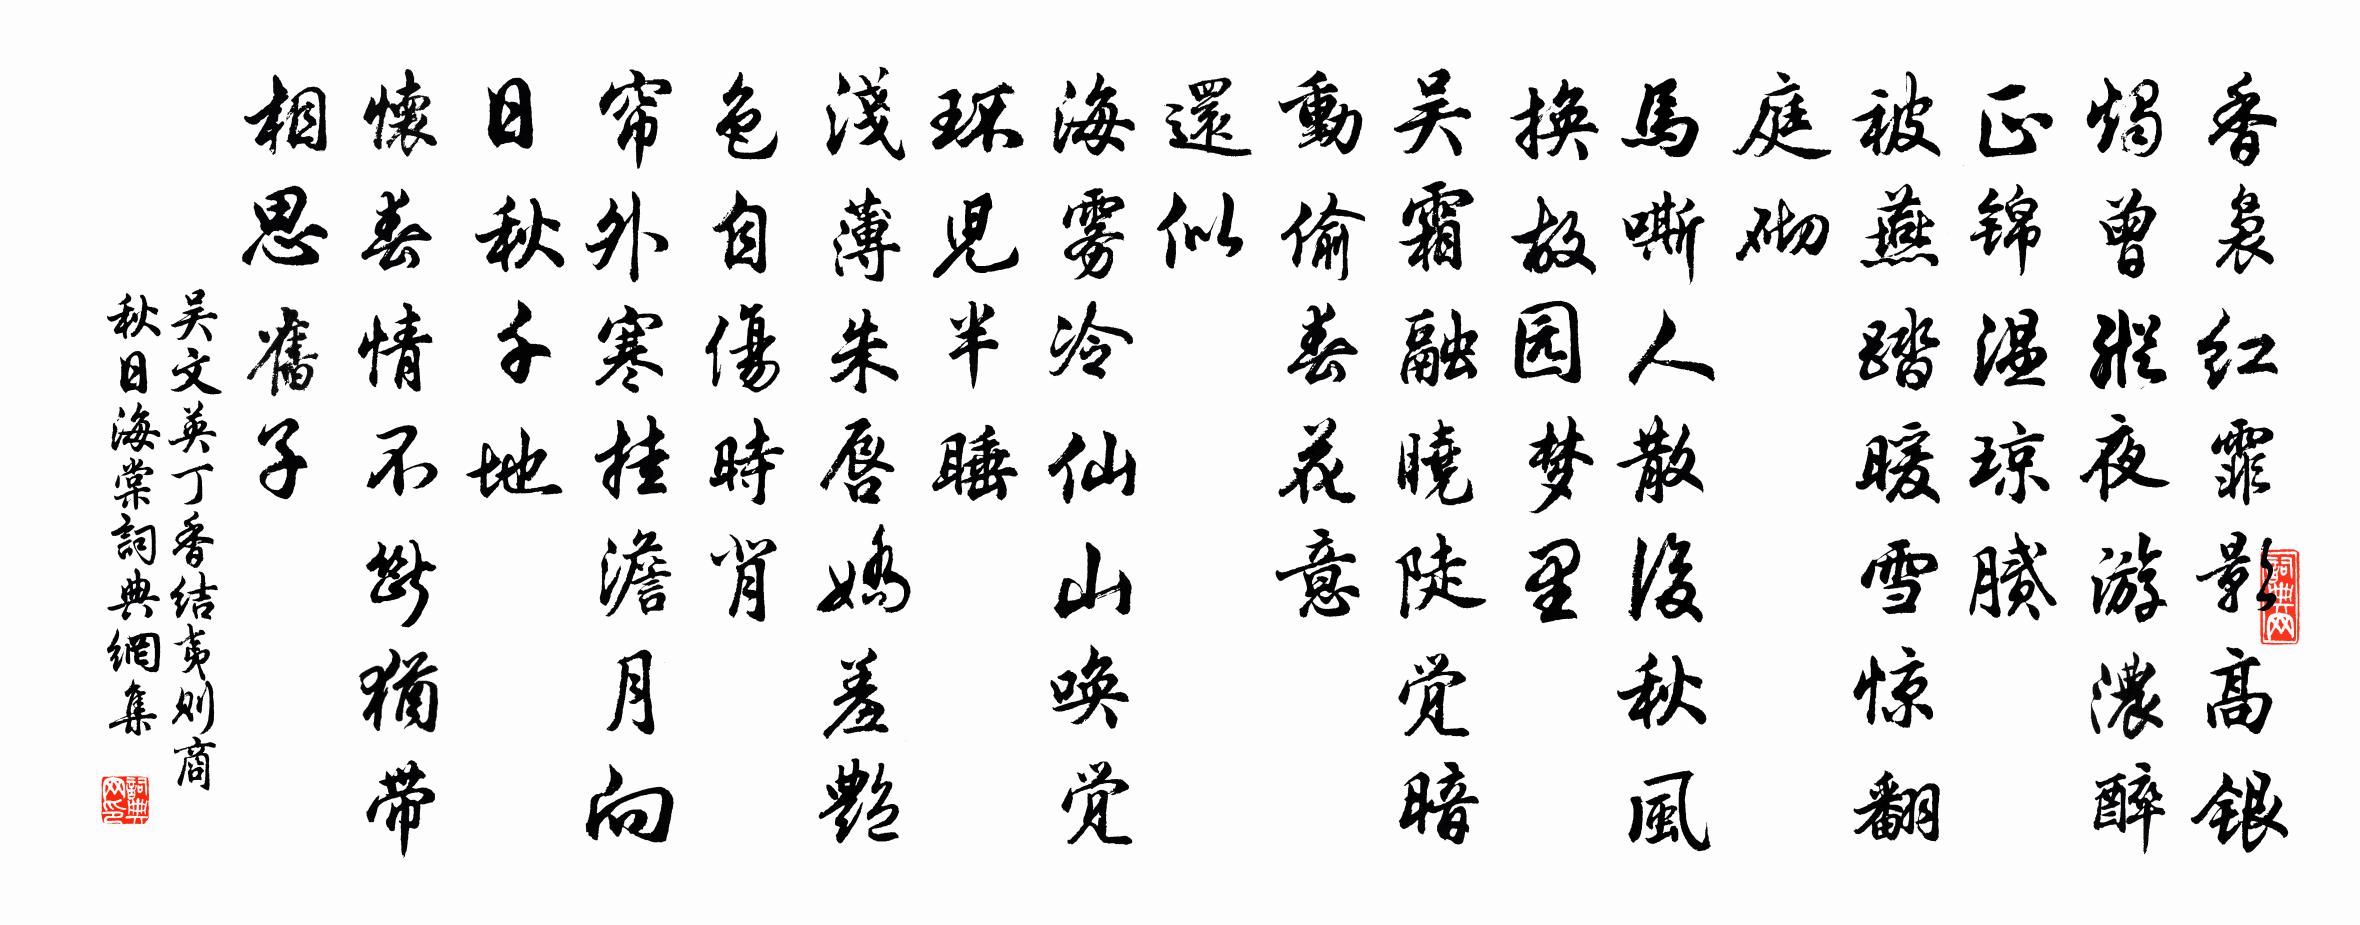 香袅红霏影高银
烛曾纵夜游浓醉
正锦温琼腻
被燕踏暖雪惊翻
庭砌
馬嘶人散後秋風
换故园梦里
吴霜融曉陡觉暗
動偷春花意
還似
海雾冷仙山唤觉
环児半睡
淺薄朱唇嬌羞艶
色自傷時背
帘外寒挂澹月向
日秋千地
懷春情不断猶带
相思舊子
吴文英丁香结夷则商
秋日海棠詞典網集
詞典网
詞典网印